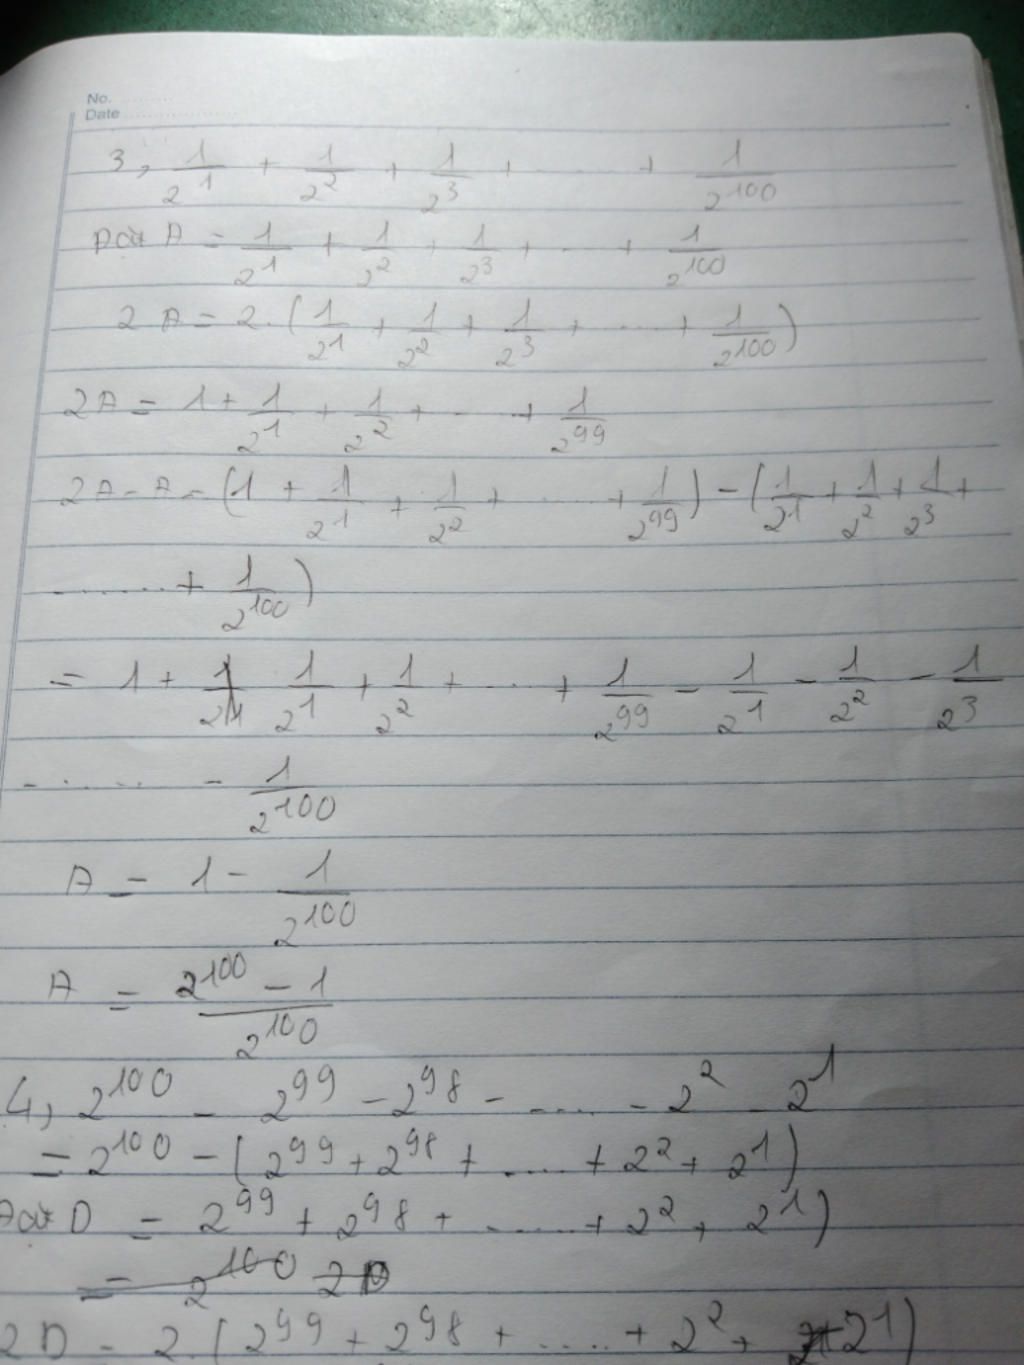 No. ............
Date ....................
3, 1/2^1 + 1/2^2 + 1/2^3 + ...... + 1/2^100
Đặt A = 1/2^1 + 1/2^2 + 1/2^3 + ..... + 1/2^100
2A = 2.(1/2^1 + 1/2^2 + 1/2^3 + ..... + 1/2^100)
2A = 1 + 1/2^1 + 1/2^2 + ..... + 1/2^99
2A - A = (1 + 1/2^1 + 1/2^2 + ..... + 1/2^99) - (1/2^1 + 1/2^2 + 1/2^3 +
....... + 1/2^100)
= 1 + 1/2^1 + 1/2^2 + ..... + 1/2^99 - 1/2^1 - 1/2^2 - 1/2^3
- ...... - 1/2^100
A = 1 - 1/2^100
A = (2^100 - 1)/2^100
4, 2^100 - 2^99 - 2^98 - ..... - 2^2 - 2^1
= 2^100 - (2^99 + 2^98 + ..... + 2^2 + 2^1)
Đặt D = 2^99 + 2^98 + ...... + 2^2 + 2^1)
2D = 2.(2^99 + 2^98 + ..... + 2^2 + 2^1)